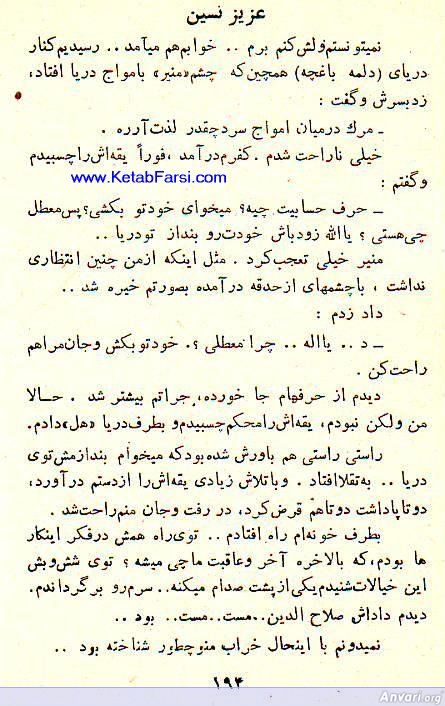 عزیز نسین
نمیتونستم ولش کنم برم .. خوابم هم میآمد .. رسیدیم کنار
دریای (دلمه باغچه) همچین که چشم «منیر» بامواج دریا افتاد،
زد بسرش و گفت :
ـ مرگ درمیان امواج سرد چقدر لذت آرره .
خیلی ناراحت شدم . کفرم درآمد ، فوراً یقه‌اش را چسبیدم
www.KetabFarsi.com
و گفتم :
ـ حرف حسابیت چیه؟ میخوای خودتو بکشی؟ پس معطل
چی هستی ؟ یاالله زودباش خودت رو بنداز تو دریا ..
منیر خیلی تعجب کرد . مثل اینکه از من چنین انتظاری
نداشت ، با چشمهای از حدقه درآمده بصورتم خیره شد ..
داد زدم :
ـ د .. یااله .. چرا معطلی ؟. خودتو بکش و جان مراهم
راحت کن .
دیدم از حرفهام جا خورده، جراتم بیشتر شد . حـالا
من ولکن نبودم، یقه‌اش را محکم چسبیدم و بطرف دریا «هل» دادم.
راستی راستی هم باورش شده بود که میخوام بندازمش توی
دریا .. به تقلا افتاد . و با تلاش زیادی یقه‌اش را از دستم درآورد،
دوتا پا داشت دوتا هم قرض کرد، در رفت و جان منم راحت شد .
بطرف خونه‌ام راه افتادم .. توی راه همش در فکر اینکار
ها بودم، که بالاخره آخر و عاقبت ما چی میشه ؟ توی شش و بش
این خیالات شنیدم یکی از پشت صدام میکنه.. سرم رو برگرداندم.
دیدم داداش صلاح الدین..مست..مست.. بود ..
نمیدونم با اینحال خراب منو چطور شناخته بود ..
۱۹۴
Anvari.org